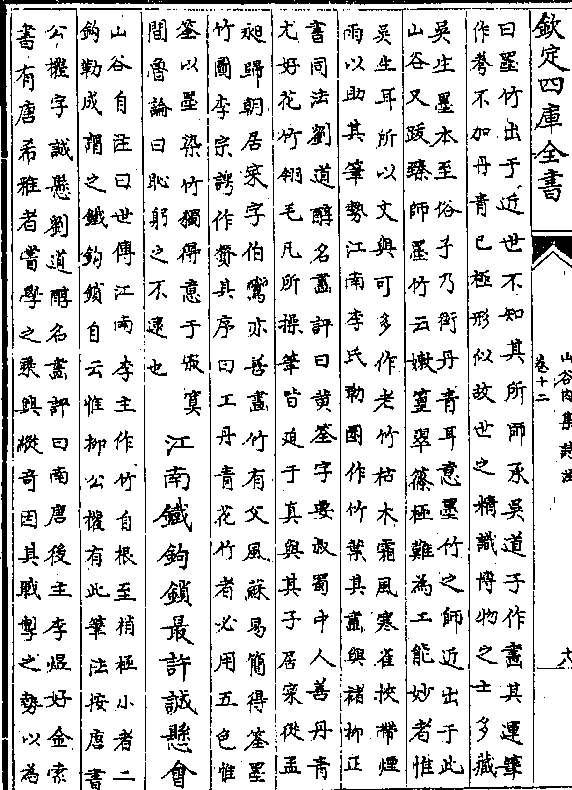 欽定四庫全書
山谷内集詩注
卷十二
曰墨竹出于近世不知其所師承吳道子作畫其運筆
作卷不加丹青已極形似故世之精識博物之士多藏
吳生墨本至俗子乃衒丹青耳意墨竹之師近出于此
山谷又跋臻師墨竹云嫩篁翠篠極難為工能妙者惟
吳生耳所以文與可多作老竹枯木霜風寒雀挾帶煙
雨以助其筆勢江南李氏勒圈作竹葉其畫與褚柳正
書同法劉道醇名畫評曰黃筌字要叔蜀中人善丹青
尤好花竹翎毛凡所操筆皆迫于真與其子居寀從孟
昶歸朝居寀字伯鸞亦善畫竹有父風蘇易簡得筌墨
竹圖李宗諤作贊其序曰工丹青花竹者必用五色惟
筌以墨染竹獨得意于寂寞
間魯論曰恥躬之不逮也
江南鐵鉤鎖最許誠懸會
山谷自注曰世傳江南李主作竹自根至梢極小者一一
鈎勒成謂之鐵鈎鎖自云惟柳公權有此筆法按唐書
公權字誠懸劉道醇名畫評曰南唐後主李煜好金索
書有唐希雅者嘗學之乘興縱奇因其戰掣之勢以為